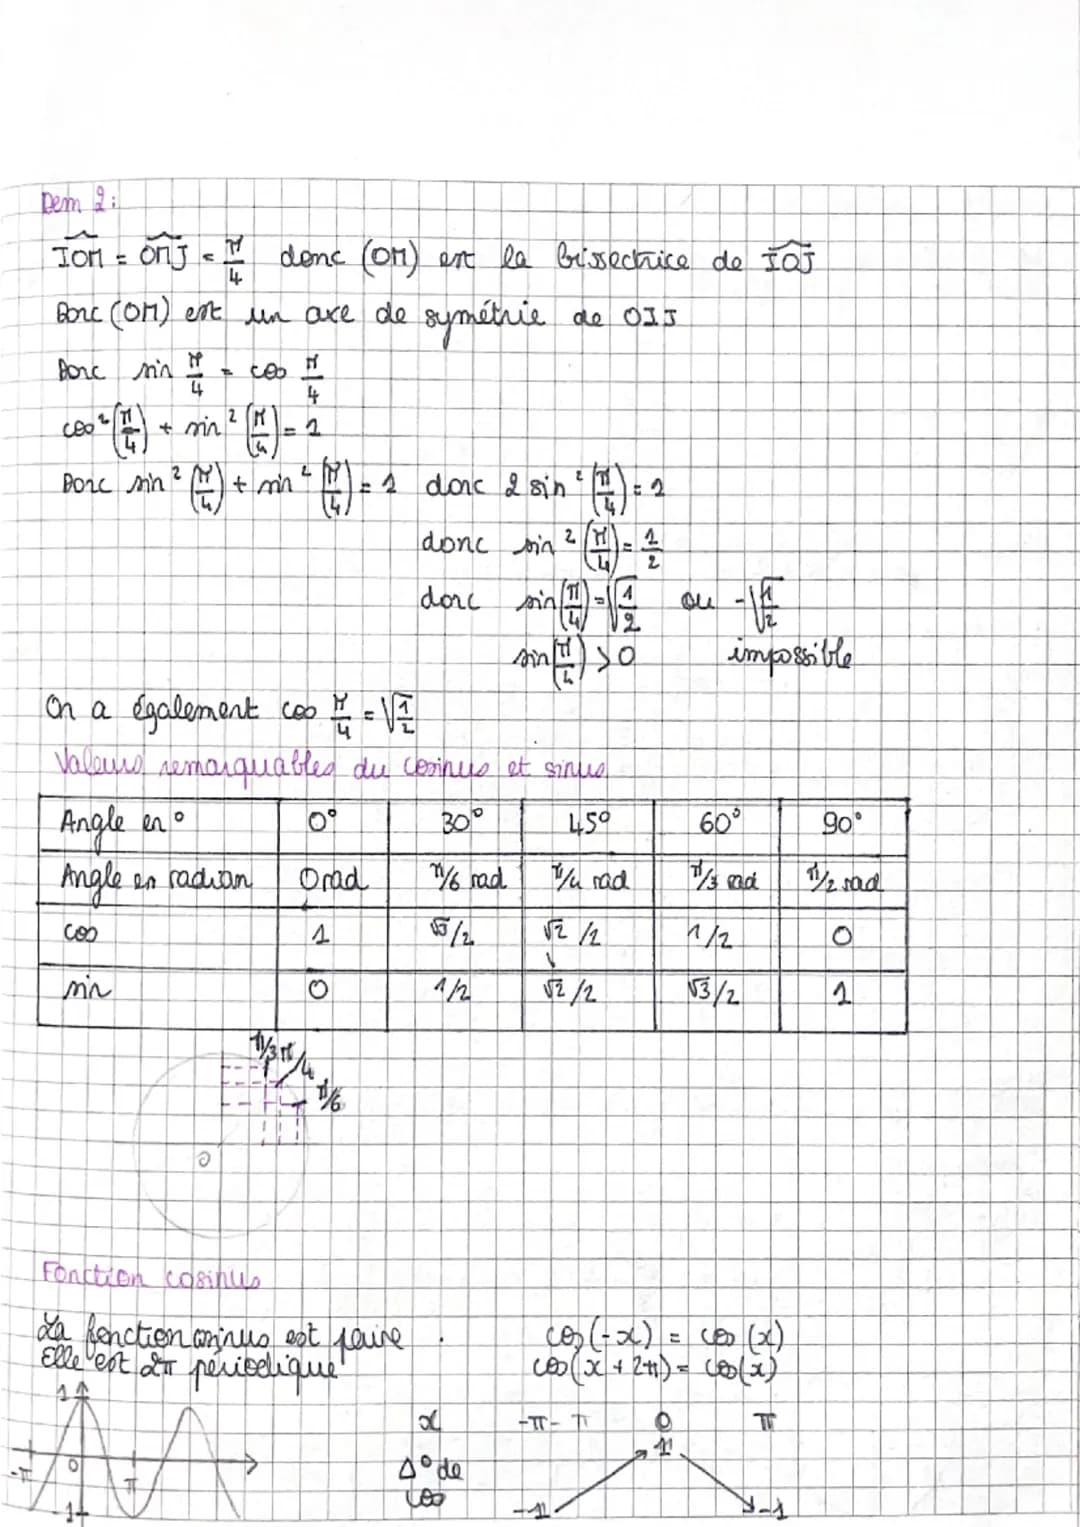 Dem 2:
IOM = OMJ = π/4 donc (OM) est la bissectrice de IOJ
Donc (OM) est un axe de symétrie de OIJ
Donc sin π/4 = cos π/4
cos²(π/4) + sin²(π/4) = 1
Donc sin²(π/4) + sin²(π/4) = 1 donc 2 sin²(π/4) = 1
donc sin²(π/4) = 1/2
donc sin(π/4) = √(1/2) ou -√(1/2)
sin(π/4) > 0 impossible
On a également cos π/4 = √(1/2)
Valeurs remarquables du cosinus et sinus
Angle en ° 0° 30° 45° 60° 90°
Angle en radian 0 rad π/6 rad π/4 rad π/3 rad π/2 rad
cos 1 √3/2 √2/2 1/2 0
sin 0 1/2 √2/2 √3/2 1
π/3 π/4
π/6
0
Fonction cosinus
La fonction cosinus est paire. cos(-x) = cos(x)
Elle est 2π périodique cos(x + 2π) = cos(x)
1
-π 0 π
-1
x -π - π 0 π
Δ° de cos -1 1 -1